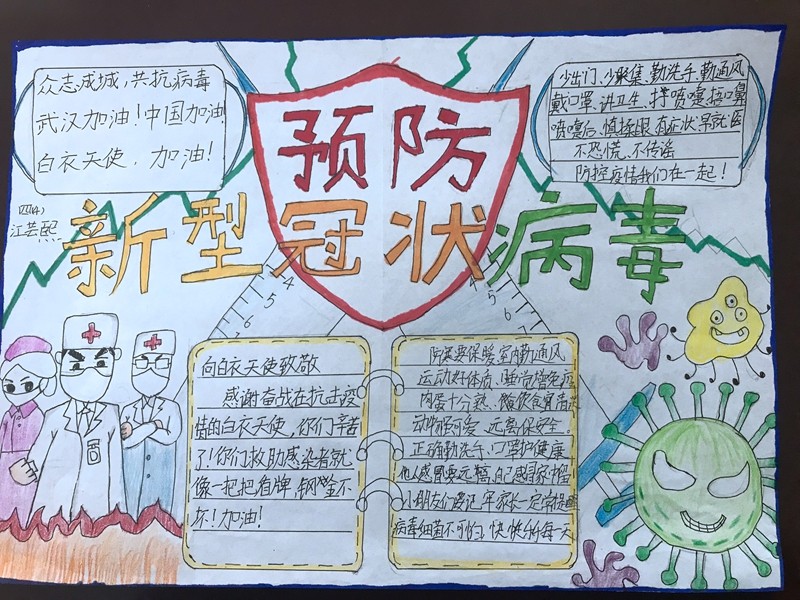 众志成城,共抗病毒
武汉加油!中国加油
白衣天使,加油!
少出门、少聚集、勤洗手、勤通风
戴口罩、讲卫生、打喷嚏捂口鼻
喷嚏后、慎揉眼、有症状、早就医
不恐慌、不传谣
防控疫情我们在一起!
预防
四(4)
江芸熙
新型冠状病毒
4
5
6
7
4
5
6
7
向白衣天使致敬
感谢奋战在抗击疫
情的白衣天使,你们辛苦
了!你们救助感染者就
像一把把盾牌,钢金不
坏!加油!
防寒要保暖、室内勤通风
运动好体质、睡觉增免疫
肉蛋十分熟、饿饮食有
动物很可爱、远离保安全。
正确勤洗手、口罩护健康
他人感冒要远离、自己感冒家中
小朋友们要记牢、家长一定常提醒
病毒细菌不可怕、快快乐乐每一天